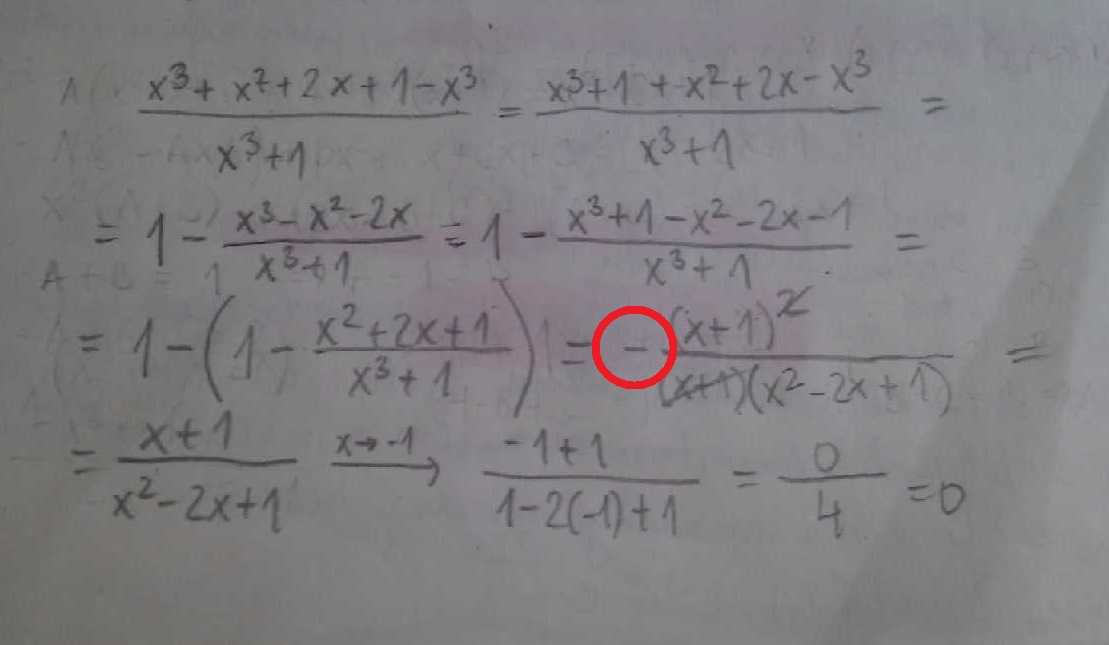 (x³ + x² + 2x + 1 - x³)/(x³ + 1) = (x³ + 1 + x² + 2x - x³)/(x³ + 1) =
= 1 - (x³ - x² - 2x)/(x³ + 1) = 1 - (x³ + 1 - x² - 2x - 1)/(x³ + 1) =
= 1 - (1 - (x² + 2x + 1)/(x³ + 1)) = - (x + 1)²/((x + 1)(x² - 2x + 1)) =
= (x + 1)/(x² - 2x + 1) x → -1 → (-1 + 1)/(1 - 2(-1) + 1) = 0/4 = 0